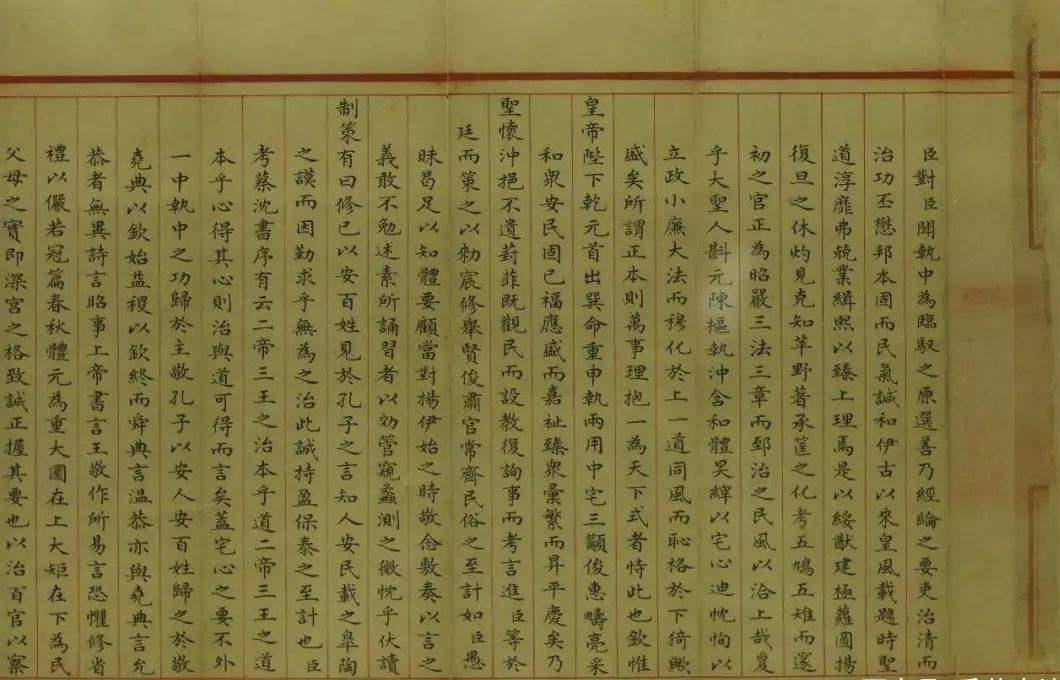 臣對臣聞執中為臨馭之原選善乃經綸之要吏治清而
治功丕懋邦本固而民氣諴和伊古以來皇風載題時聖
道淳靡弗兢業緝熙以臻上理焉是以綏猷建極蘿圖揚
復旦之休灼見克知苹野著承筐之化考五鳩五雉而邃
初之官正為昭嚴三法三章而郅治之民風以洽上哉夐
乎大聖人斟元陳樞執沖含和體昊緯以宅心迪忱恂以
立政小廉大法而穆化於上一道同風而恥格於下猗歟
盛矣所謂正本則萬事理抱一為天下式者恃此也欽惟
皇帝陛下乾元首出巽命重申執兩用中宅三顯俊惠疇亮采
和眾安民固已福應盛而嘉祉臻眾彙繁而昇平慶矣乃
聖懷沖挹不遺葑菲既觀民而設教復詢事而考言進臣等於
廷而策之以勑宸修舉賢俊肅官常齊民俗之至計如臣愚
昧曷足以知體要顧當對揚伊始之時敬念敷奏以言之
義敢不勉述素所誦習者以効管窺蠡測之微忱乎伏讀
制策有曰修己以安百姓見於孔子之言知人安民載之皋陶
之謨而因勤求乎無為之治此誠持盈保泰之至計也臣
考蔡沈書序有云二帝三王之治本乎道二帝三王之道
本乎心得其心則治與道可得而言矣蓋宅心之要不外
一中執中之功歸於主敬孔子以安人安百姓歸之於敬
堯典以欽始益稷以欽終而舜典言溫恭亦與堯典言允
恭者無異詩言昭事上帝書言王敬作所易言恐懼修省
禮以儼若冠篇春秋體元為重大圜在上大矩在下為民
父母之實即深宮之格致誠正握其要也以治百官以察